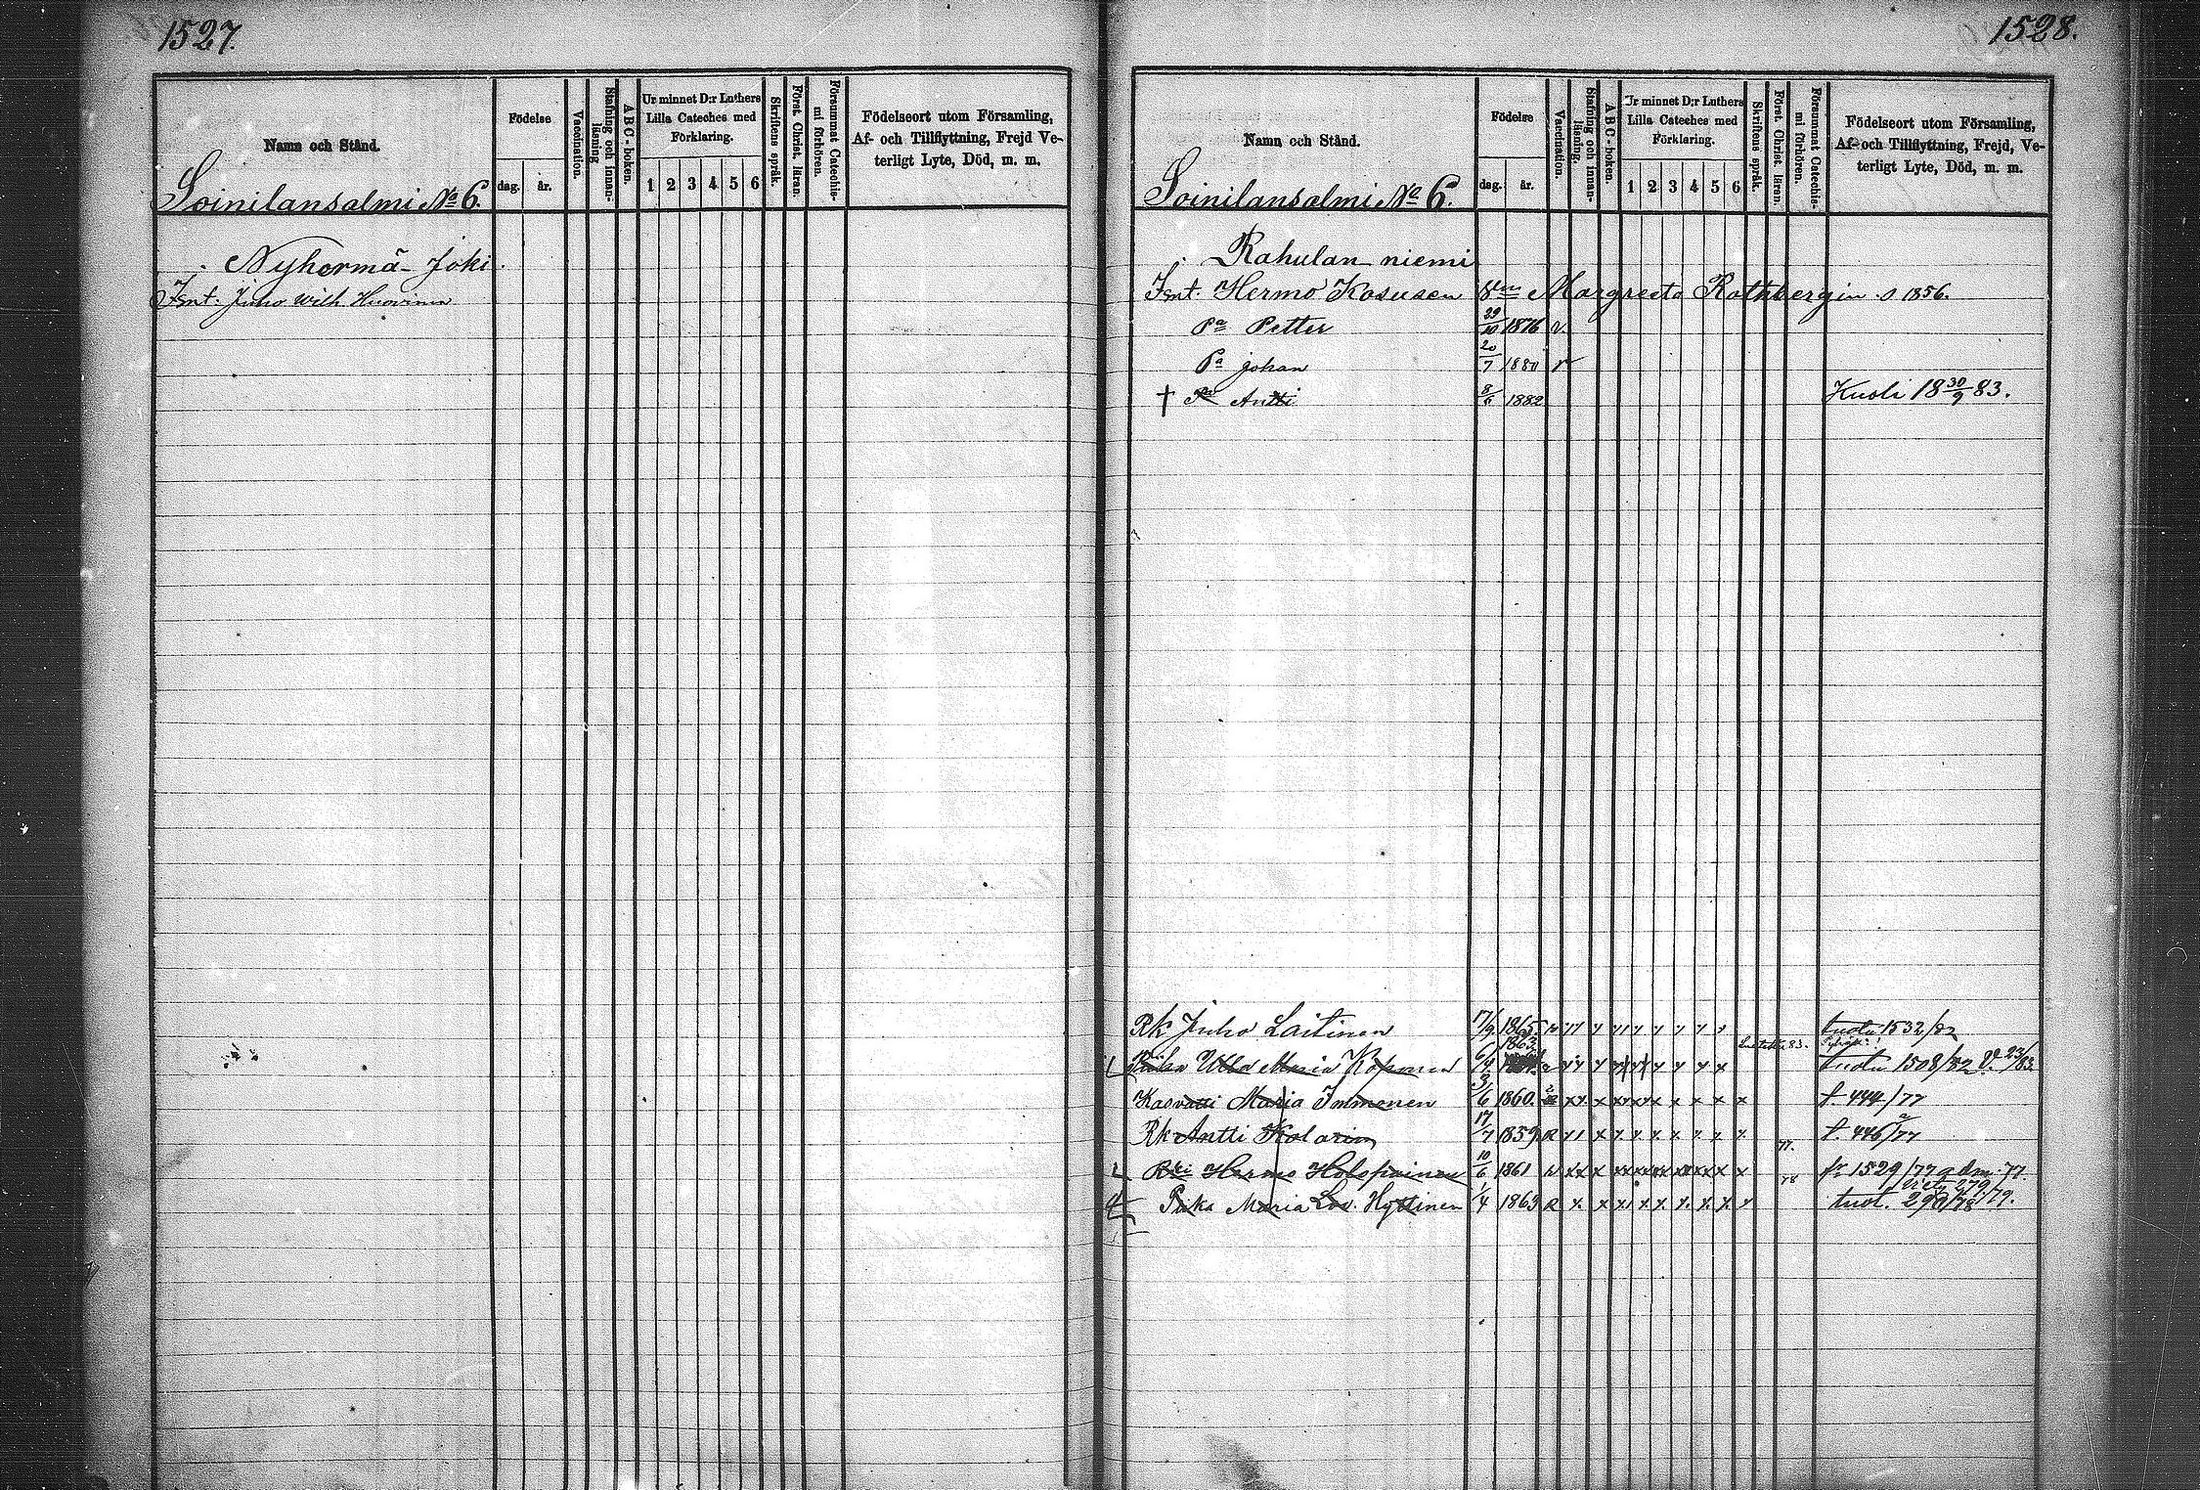 1527.
Namn och Stånd.
Födelse
dag.
år.
Vaccination.
Stafning och innan-
läsning
ABC-boken.
Ur minnet D:r Luthers
Lilla Cateches med
Förklaring.
1 2 3 4 5 6
Skriftens språk.
Först. Christ. läran.
Försummat Catechis-
mi förhören.
Födelseort utom Församling,
Af- och Tillflyttning, Frejd Ve-
terligt Lyte, Död, m. m.
Soinilansalmi No 6.
Nyhermä-Joki.
Juho Wilh. Huovinen
1528.
Namn och Stånd.
Födelse
dag.
år.
Vaccination.
Stafning och innan-
läsning.
ABC-boken.
Ur minnet D:r Luthers
Lilla Cateches med
Förklaring.
1 2 3 4 5 6
Skriftens språk.
Först. Christ. lären.
Försummat Catechis-
mi förhören.
Födelseort utom Församling,
Af- och Tillflyttning, Frejd, Ve-
terligt Lyte, Död, m. m.
Soinilansalmi No 6.
Rahulan niemi
Hermo Kosusen Margreeta Rothbergin s 1856.
Pa Petter 29/10 1876 v.
Pa Johan 20/7 1880 v
† Pa Antti 8/6 1882 Kuoli 18 30/9 83.
Rk Juho Laitinen 17/9 1865. tuotu 1532/82
Piika Ulla Maria Koponen 1863 tuotu 1508/82 23/83
Kasvatti Maria Immonen 3/6 1860. x x x x x x x x t. 444/77
Rk Antti Kolarin 17/7 1859 R x x x x x x x 77. t. 446/77
Rki Hermo Holopainen 10/6 1861 78 fr. 1529/77 adm. 77.
viety 279/79.
Piika Maria Lov. Hyttinen 1/4 1863 R x x x x x x x x tuot. 290/78